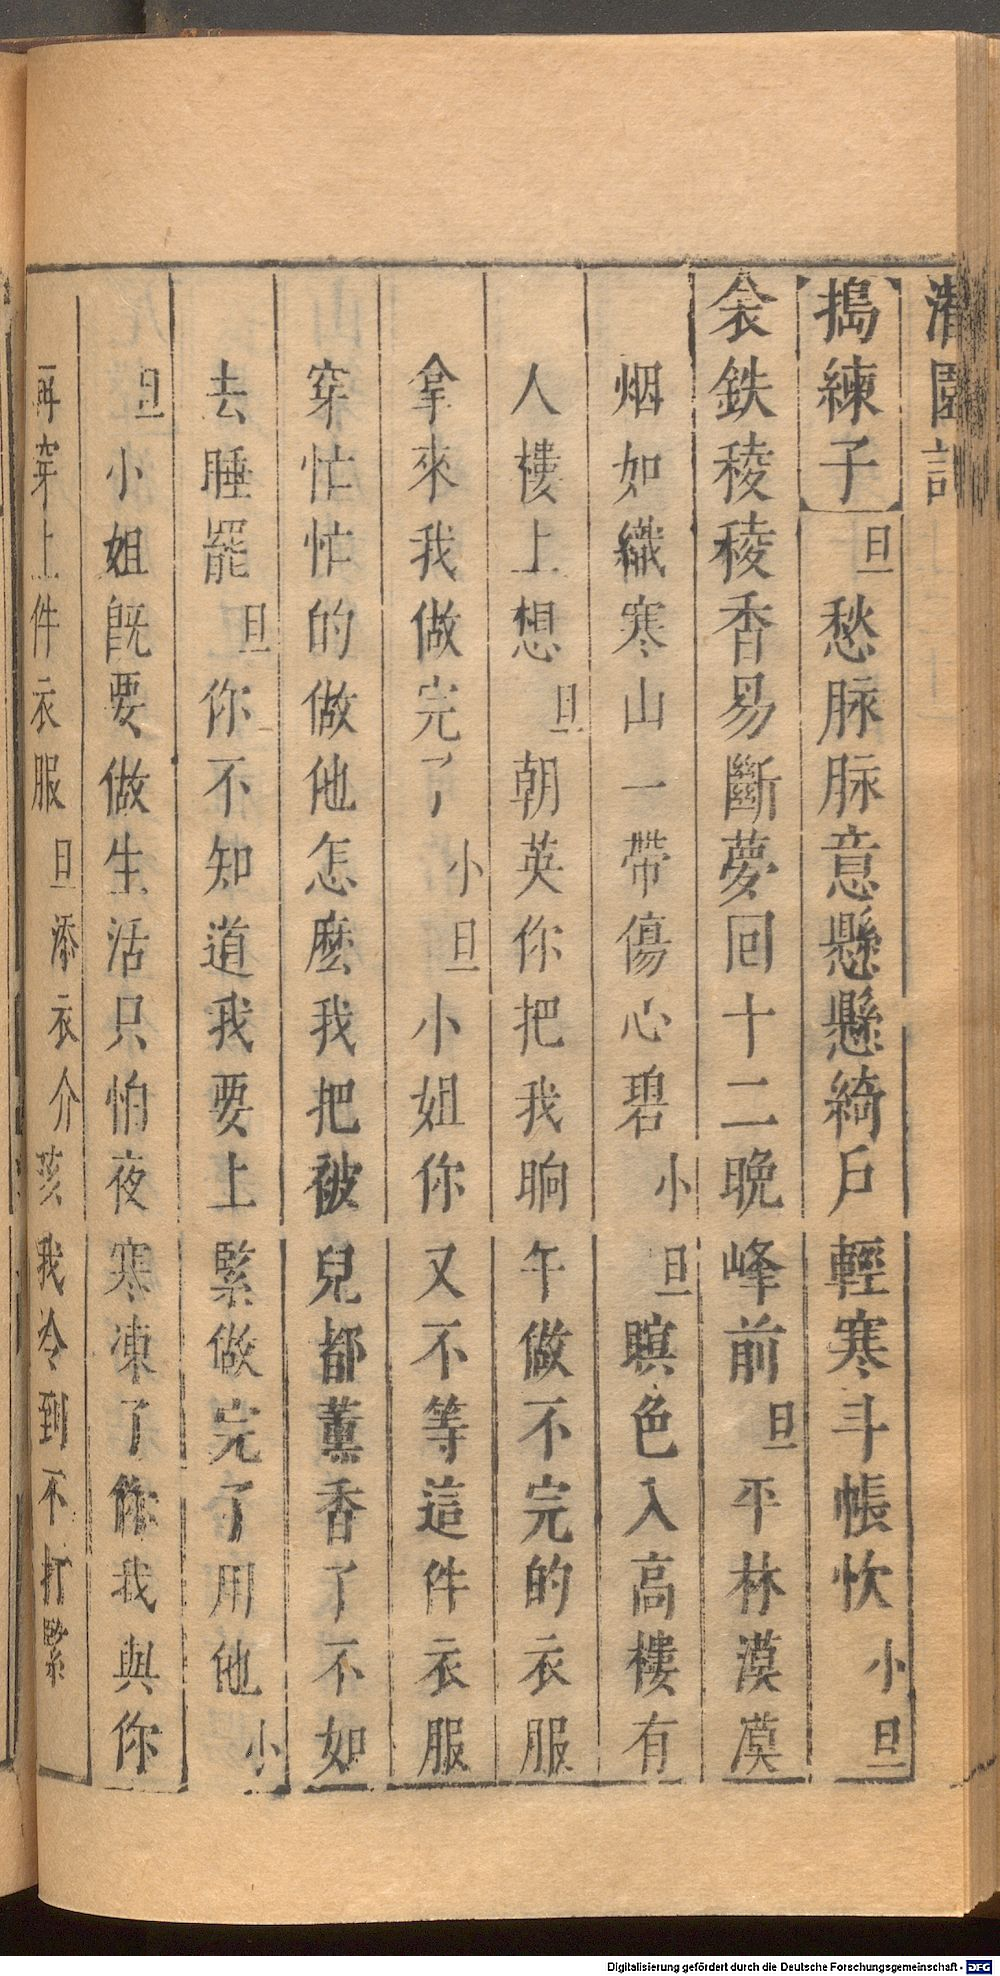 園
搗練子旦愁脉脉意懸懸綺戶輕寒斗帳忺小旦
衾鉄稜稜香易斷夢回十二晩峰前旦平林漠漠
烟如織寒山一帶傷心碧小旦暝色入高樓有
人樓上想旦朝英你把我晌午做不完的衣服
拿來我做完了小旦小姐你又不等這件衣服
穿忙忙的做他怎麽我把被兒都薰香了不如
去睡罷旦你不知道我要上緊做完了用他小
旦小姐旣要做生活只怕夜寒凍了你我與你
再穿上件衣服旦添衣介孩我冷到不打緊
Digitalisierung gefördert durch die Deutsche Forschungsgemeinschaft - DFG